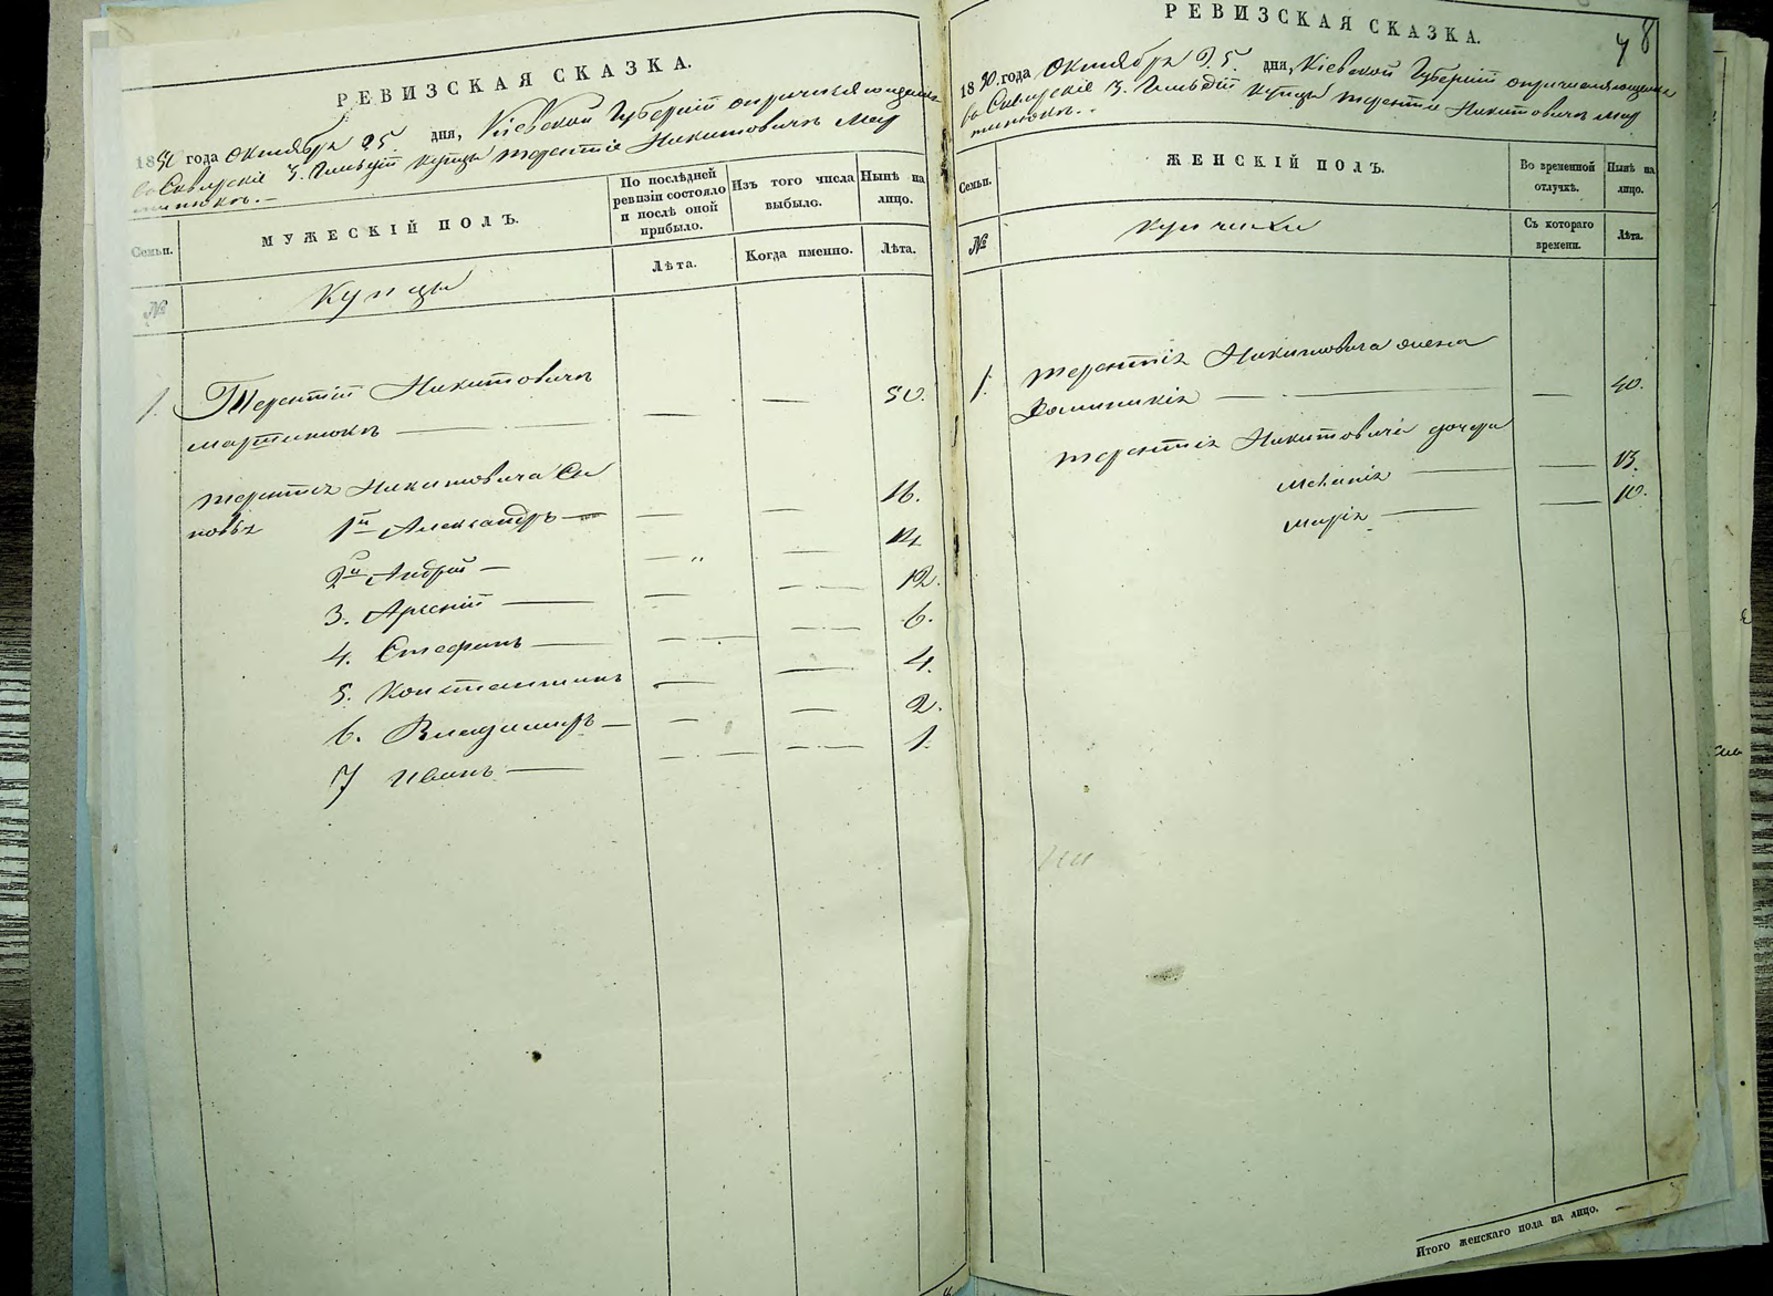 РЕВИЗСКАЯ СКАЗКА.
1850 года Октября 25. дня, Кіевской Губерніи опричисляющемся
въ Сквирскіе 3. Гильдіи купцы Терентіе Никитовичъ Мар
тинюкъ.-
Семьи.
МУЖЕСКІЙ ПОЛЪ.
По послѣдней ревизіи состояло и послѣ оной прибыло.
Изъ того числа выбыло.
Нынѣ на лицо.
№
Купцы
Лѣта.
Когда именно.
Лѣта.
1. Терентій Никитовичъ
Мартинюкъ — — — 50.
Терентія Никитовича Си
новья 1й Александръ — — — 16.
2й Андрій — — „ — 14
3. Арсеній — — — 12.
4. Стефанъ — — — 6.
5. Константинъ — — 4.
6. Владимиръ — — — 2.
7 Иванъ — — — 1.
РЕВИЗСКАЯ СКАЗКА.
48
1850 года Октября 25. дня, Кіевской Губерніи опричисляющемся
въ Сквирскіе 3. Гильдіи купцы Терентіе Никитовичъ Мар
тинюкъ.-
Семьи.
ЖЕНСКІЙ ПОЛЪ.
Во временной отлучкѣ.
Нынѣ на лицо.
№
Купчихи
Съ котораго времени.
Лѣта.
1. Терентія Никитовича жена
Доминикія — — — 40.
Терентія Никитовича дочери
Меланія — — 13.
Марія — — 10.
Итого женскаго пола на лицо. —